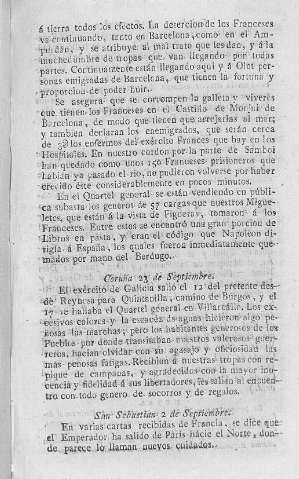 á tierra todos los efectos. La desercion de los Franceses
va continuando, tanto en Barcelona, como en el Am-
purdan, y se atribuye al mal trato que les dan, y á la
muchedumbre de tropas que van llegando por todas
partes. Continuamente están llegando aquí y á Olot per-
sonas emigradas de Barcelona, que tienen la fortuna y
proporcion de poder huir.
Se asegura que se corrompen la galleta y viveres
que tienen los Franceses en el Castillo de Monjui de
Barcelona, de modo que tienen que arrojarlas al mar;
y tambien declaran los enemigrados, que serán cerca
de los enfermos del exército Frances que hay en los
Hospitales. En nuestro cordon por la parte de Sanboi
han quedado como unos 150 Franceses prisioneros que
habian ya pasado el rio, no pudieron volverse por haber
crecido éste considerablemente en pocos minutos.
En el Quartel general se están vendiendo en públi-
ca subasta los generos de 57 cargas que nuestros Migue-
letes, que están á la vista de Figueras, tomaron á los
Franceses. Entre estas se encontró una gran porcion de
Libros en pasta, y eran el código que Napoleon di-
rigia á España, los quales fueron inmediatamente que-
mados por mano del Berdugo.
Coruña 23 de Septiembre.
El exército de Galicia salió el 12 del pretente des-
de Reynosa para Quintanilla, camino de Burgos, y el
17 se hallaba el Quartel general en Villarcáin. Los ex-
cesivos calores y la escasez de aguas hicieron algo pe-
nosas las marchas; pero los habitantes generosos de los
Pueblos por donde transitaban nuestros valerosos guer-
reros, hacian olvidar con su agasajo y oficiosidad las
mas penosas fatigas. Recibian á nuestras tropas con re-
pique de campanas, y agradecidos con la mayor ino-
cencia y fidelidad á sus libertadores, les salian al encuen-
tro con todo genero de socorros y de regalos.
San Sebastian 2 de Septiembre.
En varias cartas recibidas de Francia, se dice que
el Emperador ha salido de Paris hácie el Norte, don-
de parece lo llaman nuevos cuidados.